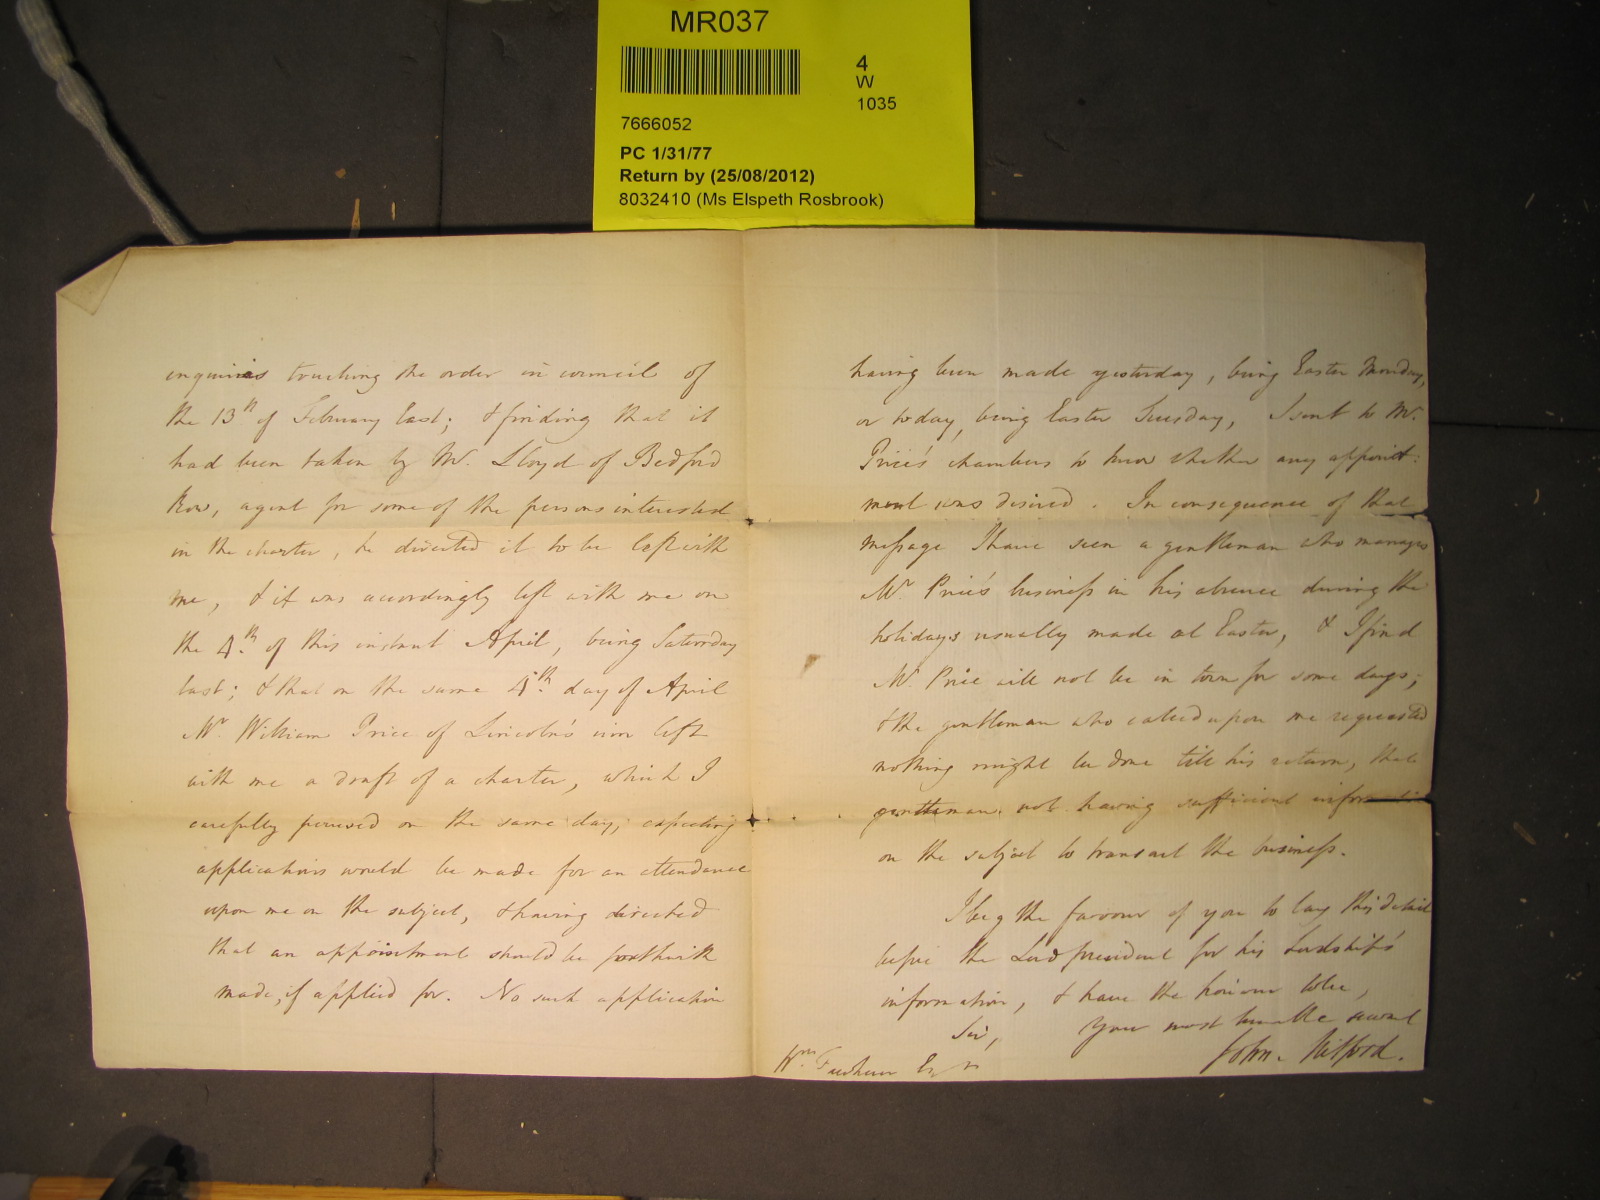 MR037
4
W
1035
7666052
PC 1/31/77
Return by (25/08/2012)
8032410 (Ms Elspeth Rosbrook)
enquiries touching the order in council of
the 13th of February last; & finding that it
had been taken by Mr. Lloyd of Bedford
Row, agent for some of the persons interested
in the charter, he directed it to be left with
me, & it was accordingly left with me on
the 4th. of this instant April, being Saturday
last; & that on the same 4th. day of April
Mr. William Price of Lincoln's inn left
with me a draft of a charter, which I
carefully perused on the same day, expecting
applications would be made for an attendance
upon me on the subject, & having directed
that an appointment should be forthwith
made, if applied for. No such application
having been made yesterday, being Easter Monday,
or today, being Easter Tuesday, I sent to Mr.
Price's chambers to know whether any appoint:
ment was desired. In consequence of that
message I have seen a gentleman who manages
Mr. Price's business in his absence during the
holidays usually made at Easter, & I find
Mr. Price will not be in town for some days;
& the gentleman who called upon me requested
nothing might be done till his return, that
gentleman not having sufficient information
on the subject to transact the business.
I beg the favour of you to lay this detail
before the Lord president for his Lordship's
information, & have the honour to be,
Sir, Your most humble servant
John Mitford.
Wm. Esqr